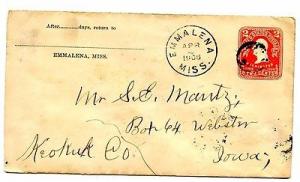 After..........days, return to
EMMALENA, MISS.
EMMALENA
APR
1908
MISS.
2 2
TWO CENTS
Mr S. E. Mantz,
Box 64 Webster
Keokuk Co. Iowa,